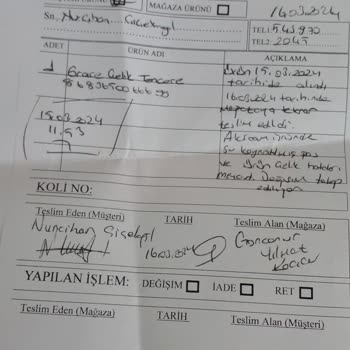 MAĞAZA ÜRÜNÜ
16.03.2024
Sn. Nurcihan Çiçekyıl
TEL1: 543 9 70
TEL2: 2045
ADET
ÜRÜN ADI
AÇIKLAMA
1 Grace Çelik Tencere
Ürün 15.03.2024
tarihinde alındı
16.03.2024 tarihinde
Mağazaya tekrar
teslim edildi.
15.03.2024
11.53
su kaynatılmış
ve ürün çelik hatası
mevcut. Değişim talep
ediliyor
KOLİ NO:
Teslim Eden (Müşteri)
TARİH
Teslim Alan (Mağaza)
Nurcihan Çiçekyıl
16.03.2024
YAPILAN İŞLEM:
DEĞİŞİM
İADE
RET
Teslim Eden (Mağaza)
TARİH
Teslim Alan (Müşteri)